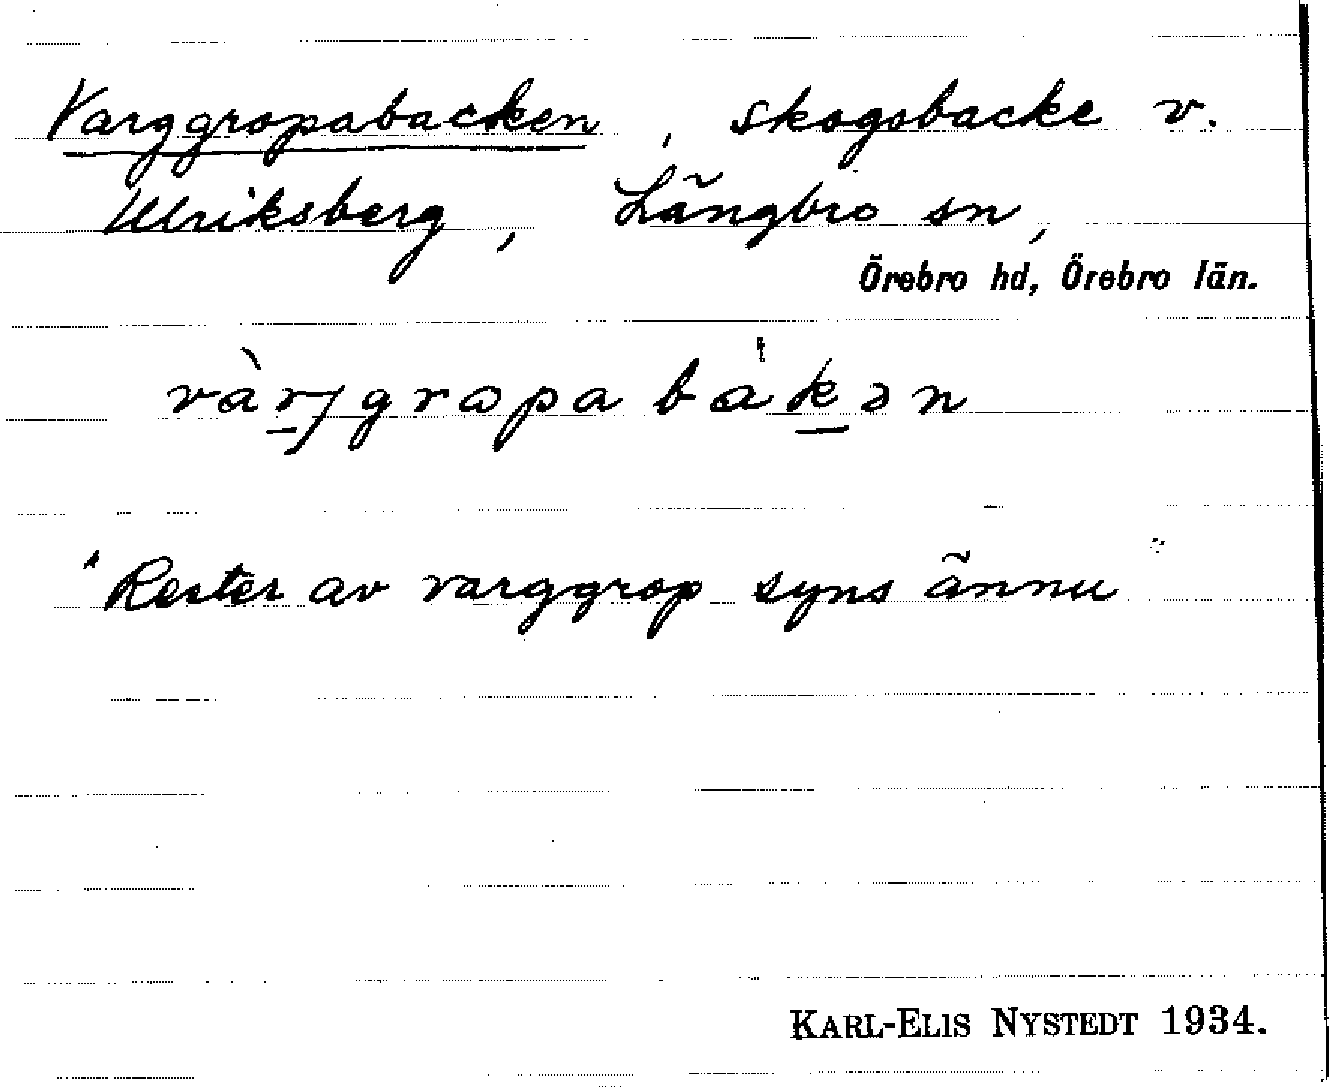 Varggropabacken, skogsbacke v.
Ulriksberg, Längbro sn,
Örebro hd, Örebro län.
vàrjgropabakən
"Rester av varggrop syns ännu"
KARL-ELIS NYSTEDT 1934.